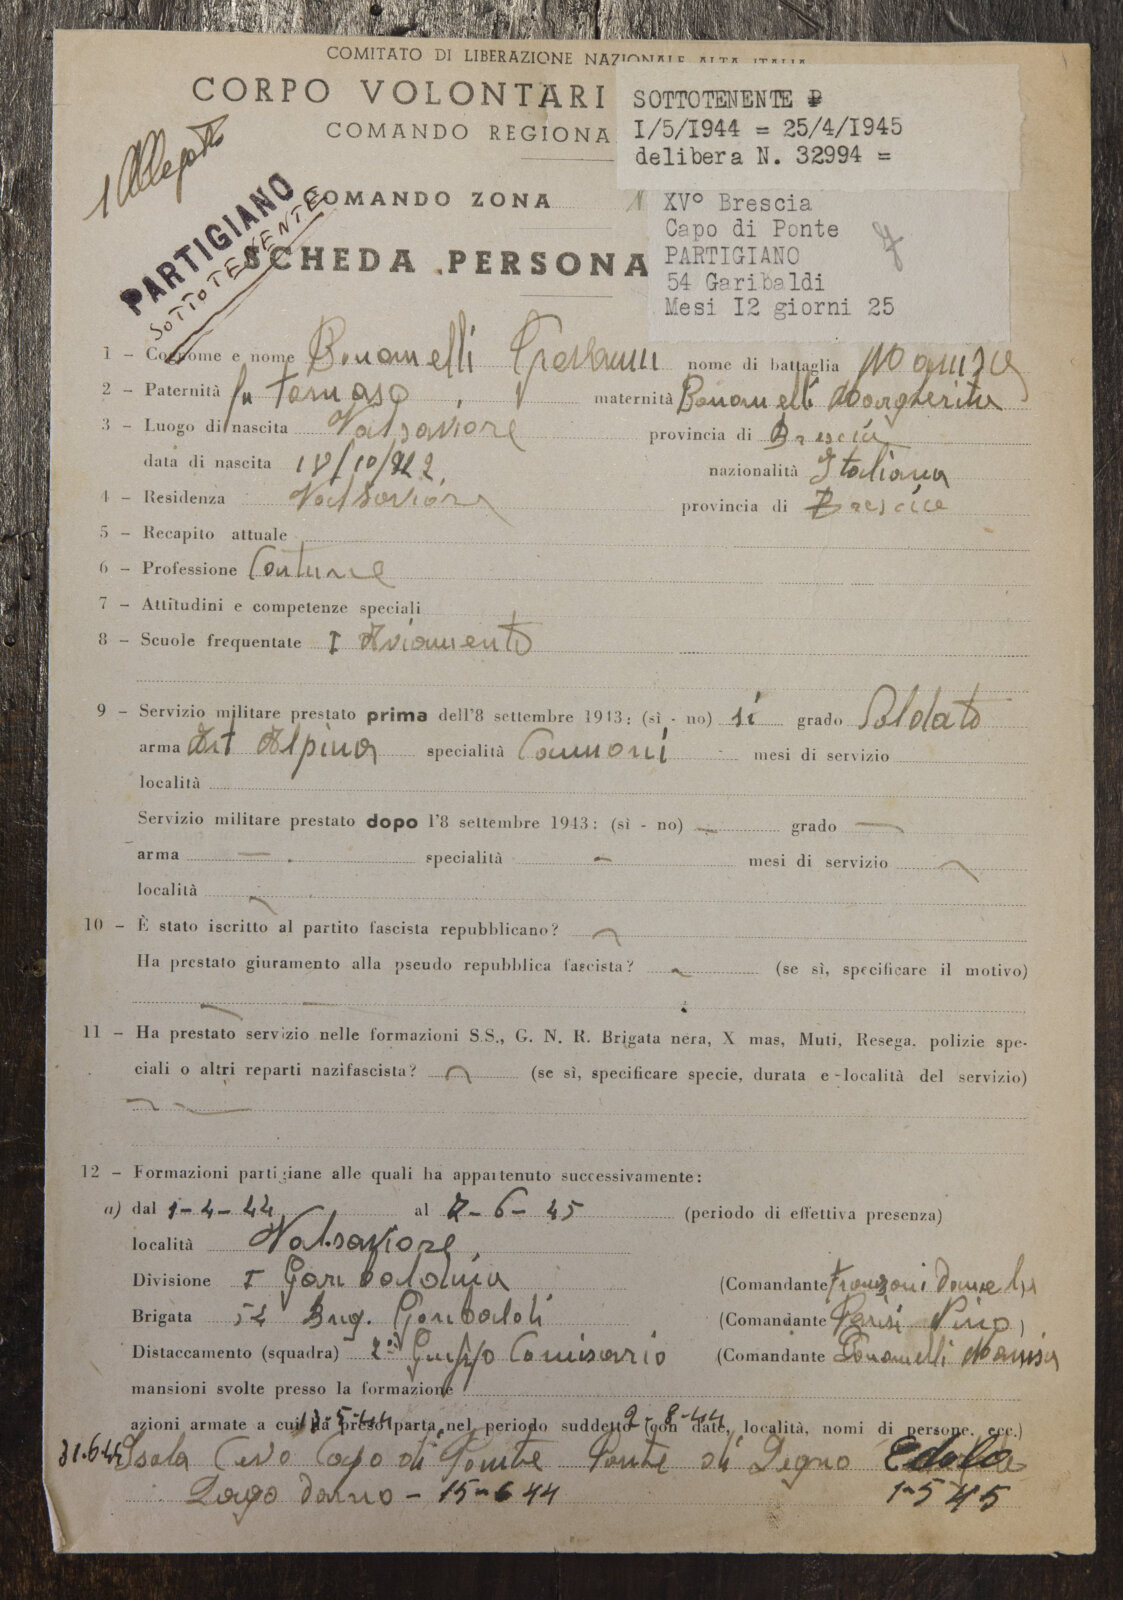 COMITATO DI LIBERAZIONE NAZIONALE ALTA ITALIA
CORPO VOLONTARI
COMANDO REGIONA
SOTTOTENENTE
I/5/1944 = 25/4/1945
delibera N. 32994 =
1 Allegato
PARTIGIANO
SOTTOTENENTE
COMANDO ZONA
XV° Brescia
Capo di Ponte
PARTIGIANO
54 Garibaldi
Mesi I2 giorni 25
SCHEDA PERSONA
1 – Cognome e nome Bonomelli nome di battaglia
2 – Paternità fu Tomaso maternità Bonomelli Margherita
3 – Luogo di nascita Valsaviore provincia di Brescia
data di nascita nazionalità Italiana
4 – Residenza Valsaviore provincia di Brescia
5 – Recapito attuale
6 – Professione
7 – Attitudini e competenze speciali
8 – Scuole frequentate I Aviamento
9 – Servizio militare prestato prima dell'8 settembre 1943: (sì - no) si grado Soldato
arma Art Alpina specialità Cannoni mesi di servizio
località
Servizio militare prestato dopo l'8 settembre 1943: (sì - no) — grado —
arma — specialità - mesi di servizio
località
10 – È stato iscritto al partito fascista repubblicano?
Ha prestato giuramento alla pseudo repubblica fascista? (se sì, specificare il motivo)
11 – Ha prestato servizio nelle formazioni S.S., G. N. R. Brigata nera, X mas, Muti, Resega, polizie spe-
ciali o altri reparti nazifascista? (se sì, specificare specie, durata e località del servizio)
12 – Formazioni partigiane alle quali ha appartenuto successivamente:
a) dal 1-4-44 al 2-6-45 (periodo di effettiva presenza)
località Valsaviore
Divisione I Garibaldina (Comandante Franzoni
Brigata 54 Brig. Garibaldi (Comandante Parisi Nino )
Distaccamento (squadra) 2° Gruppo Comisario (Comandante Bonomelli
mansioni svolte presso la formazione
azioni armate a cui ha preso parte nel periodo suddetto (con date, località, nomi di persone, ecc.)
13-5-44 2-8-44
31.6.44 Isola Cevo Capo di Ponte Ponte di Degno Edolo
Lago d'Arno - 15-6-44 1-5-45